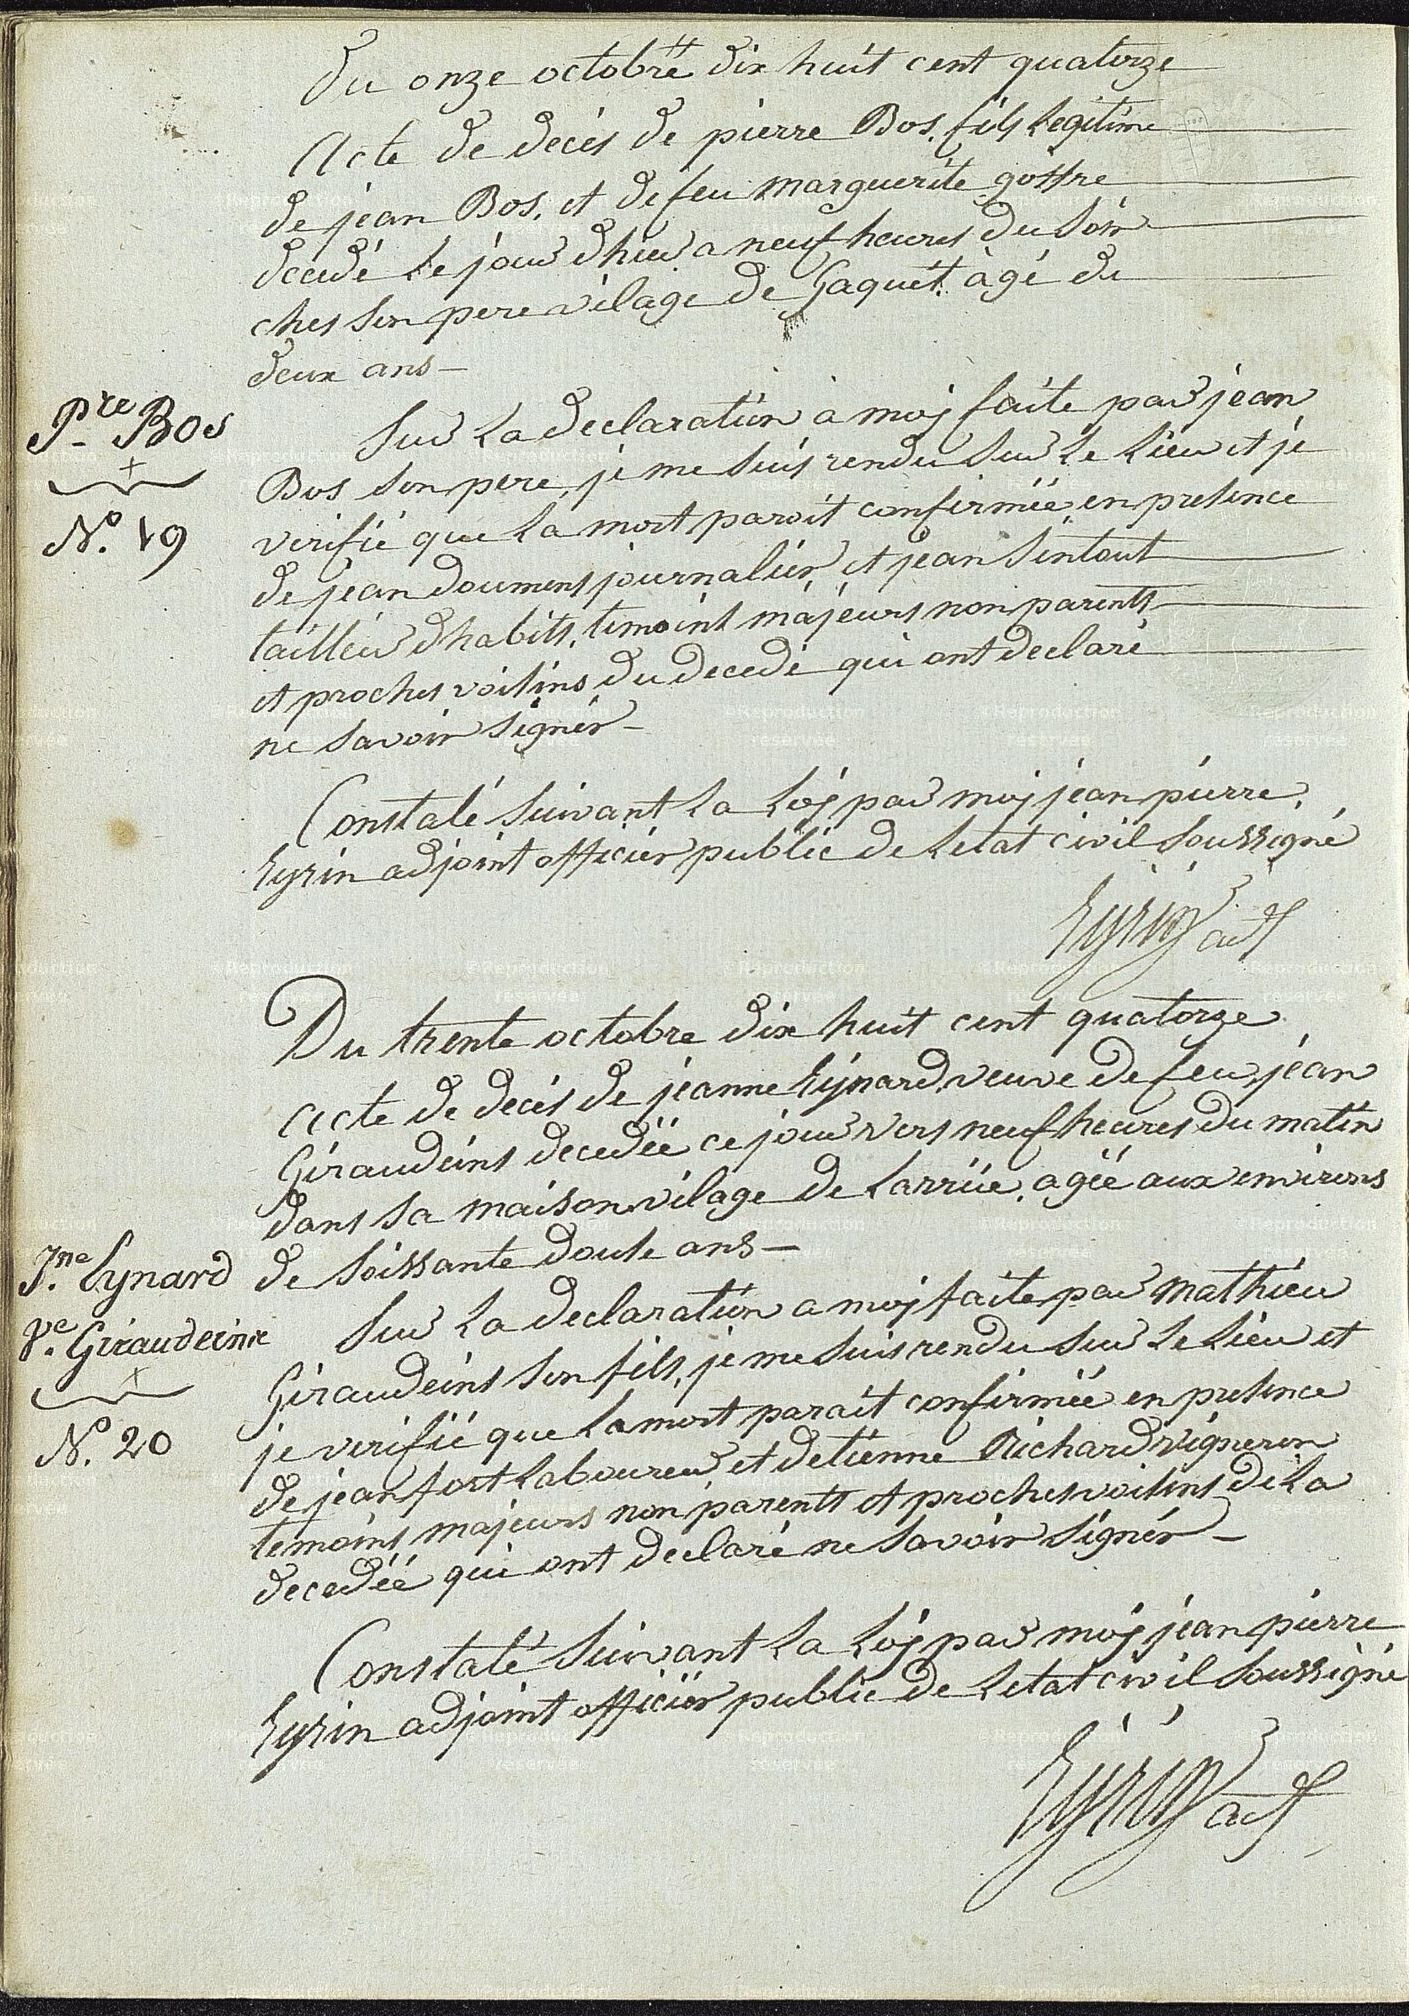 Du onze octobre dix huit cent quatorze
Acte de decés de pierre Bos, fils Legitime
de jean Bos, et de feu marguerite goffre
decedé le jour dhier a neuf heures du Soir
ches Son pere vilage de Gaquet, àgé de
deux ans —
Sur La declaration à moy faite par jean
Pre Bos
Bos Son pere, je me Suis rendu Sur Le Lieu et je
verifié que La mort paroit confirméé en presence
No. 19
de jean doumens journalier, et jean Sintout
tailleur dhabits, temoins majeurs non parents
et proches voisins du decedé qui ont declaré
ne Savoir Signér —
Constaté Suivant La Loy par moy jean pierre
Eyrin adjoint officiér public de Letat civil Soussigné
Eyrin adt
Du trente octobre dix huit cent quatorze
acte de decés de jeanne Eynard, veuve de feu jean
Giraudeins decedéé ce jour vers neuf heures du matin
dans sa maison vilage de Larrüe, agéé aux environs
Jne Eynard
de Soissante douse ans —
ve Giraudeine
Sur La declaration a moy faite par mathieu
Giraudeins Son fils, je me Suis rendu Sur Le Lieu et
je verifié que La mort parait confirméé en presence
No. 20
de jean fort Laboureur et detienne Richard vigneron
temoins majeurs non parents et proches voisins de La
decedéé qui ont declaré ne Savoir Signér —
Constaté Suivant La Loy par moy jean pierre
Eyrin adjoint officiér public de Letat civil Soussigné
Eyrin adt